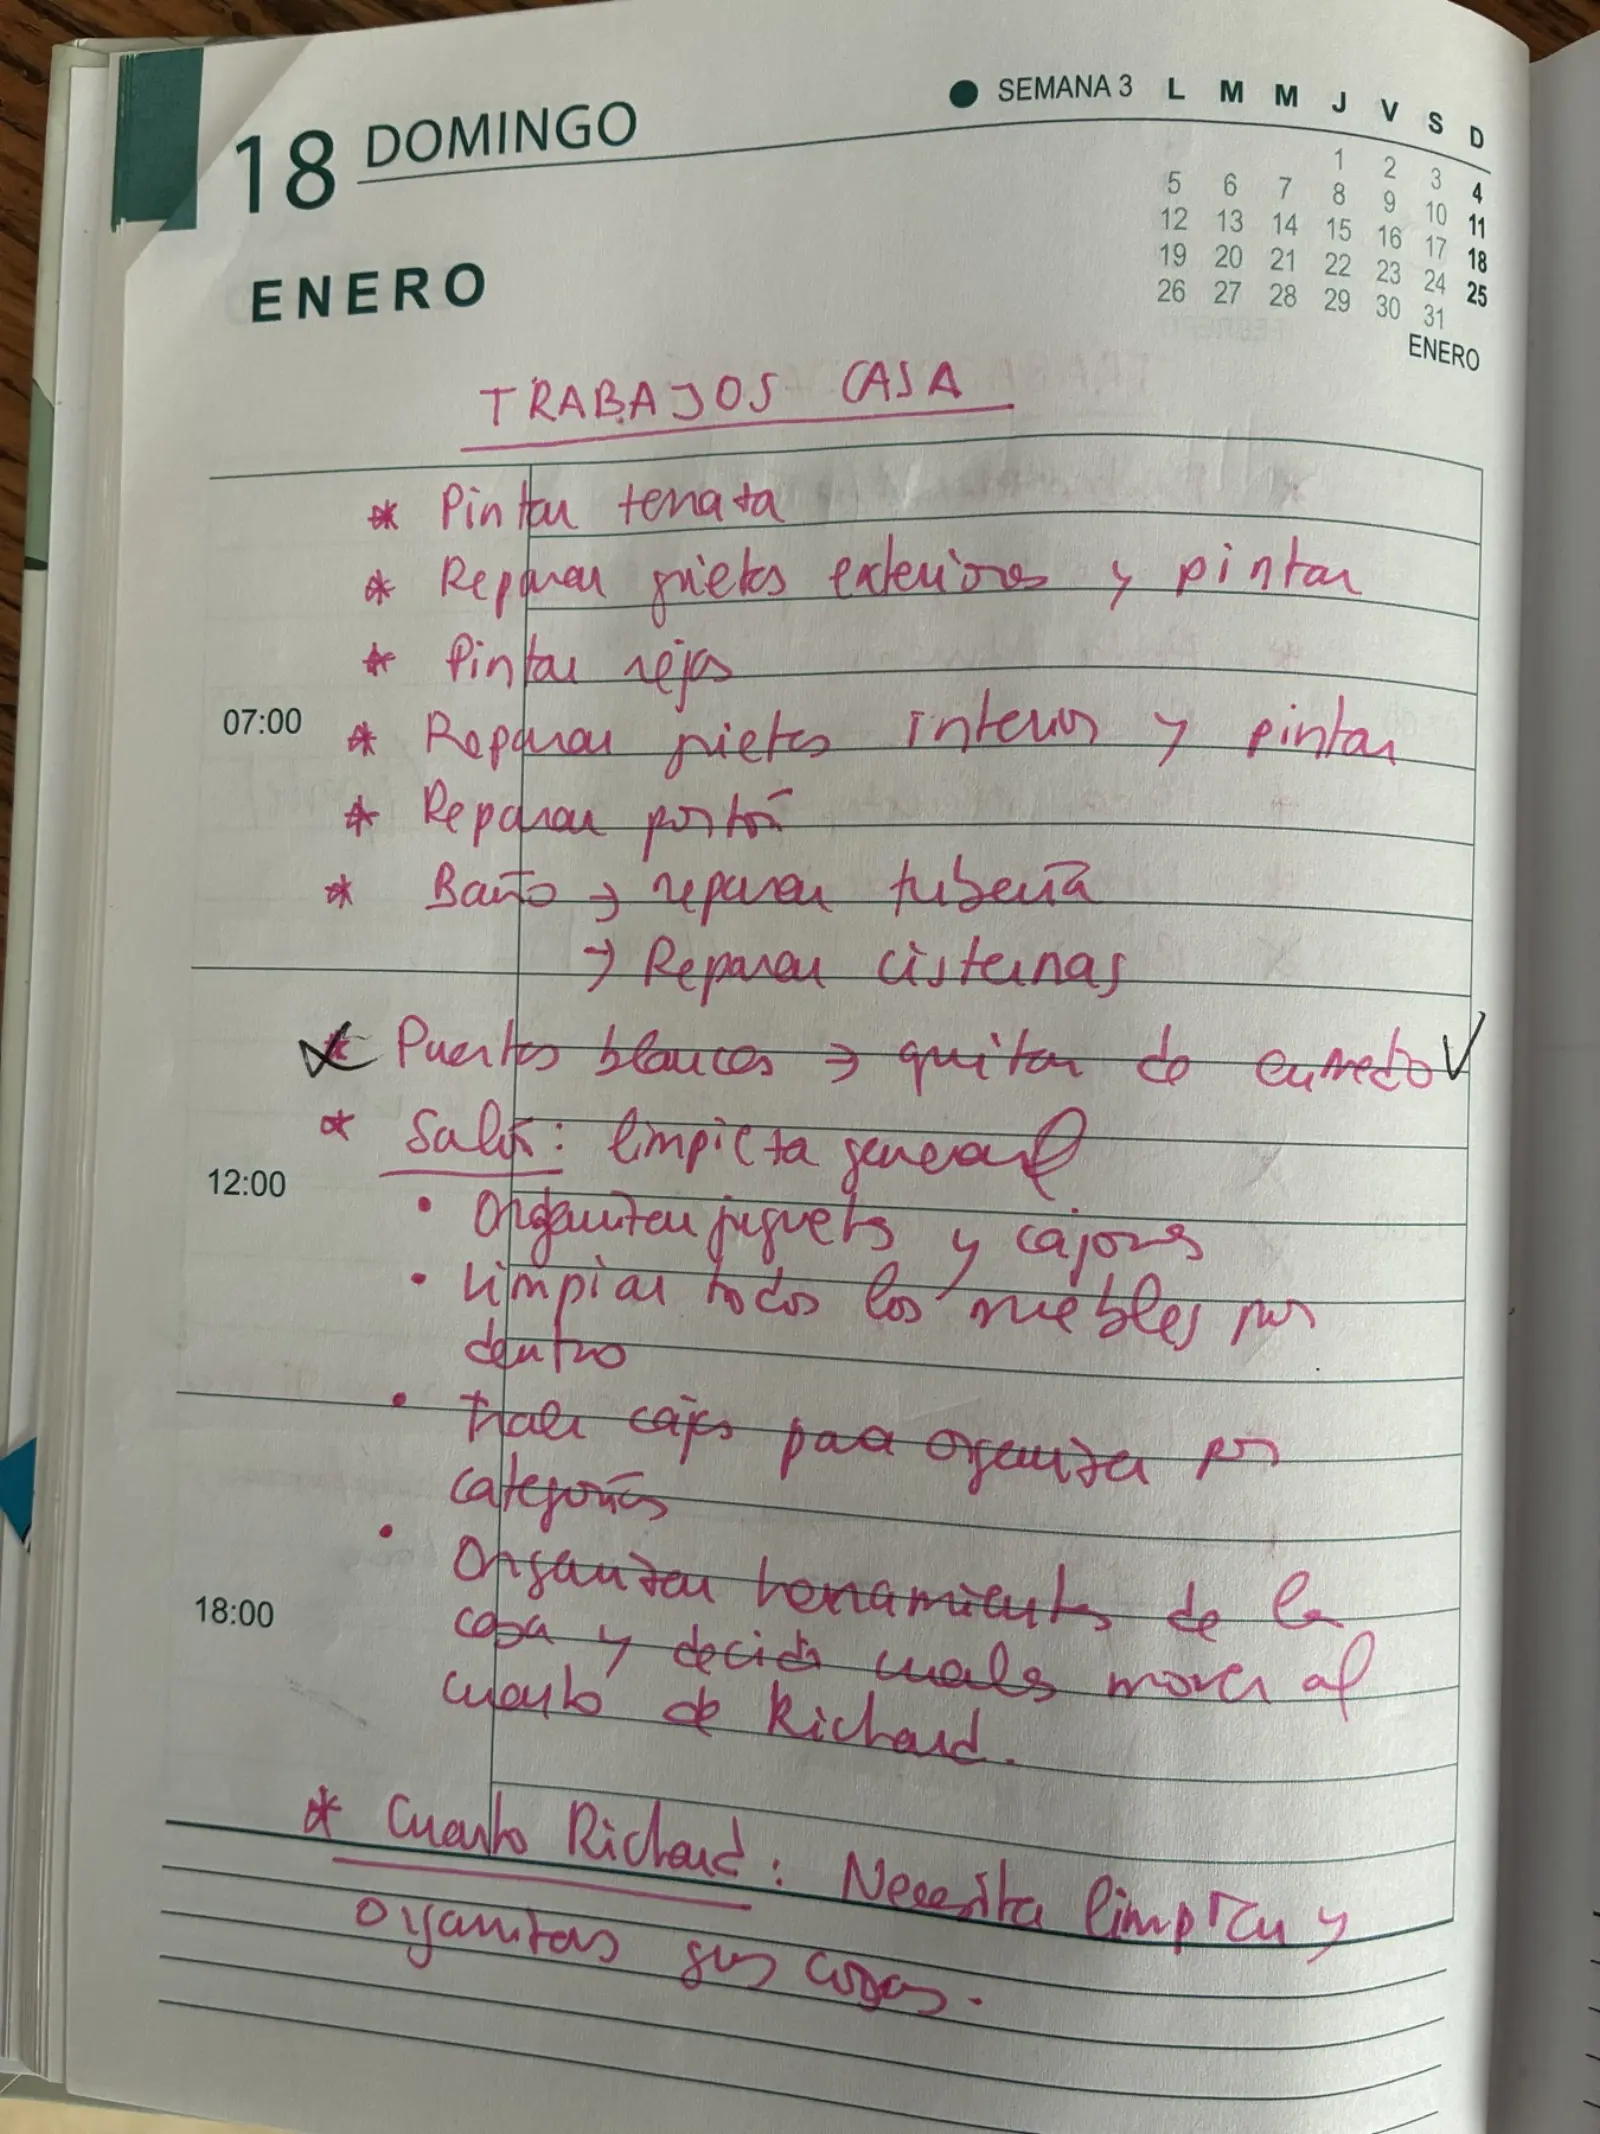 18 DOMINGO
ENERO
SEMANA 3 L M M J V S D
1 2 3 4
5 6 7 8 9 10 11
12 13 14 15 16 17 18
19 20 21 22 23 24 25
26 27 28 29 30 31
ENERO
TRABAJOS CASA
* Pintar terraza
* Reparar grietas exteriores y pintar
* Pintar rejas
07:00
* Reparar grietas interior y pintar
* Reparar portón
* Baño → reparar tubería
→ Reparar cisternas
* Puertas blancas → quitar de en medio √
* Salón: limpieza general
12:00
• Organizar juguetes y cajones
• Limpiar todos los muebles por
dentro
• Traer cajas para organizar por
categorías
• Organizar herramientas de la
18:00
casa y decidir cuales mover al
cuarto de Richard.
* Cuarto Richard: Necesita limpiar y
organizar sus cosas.